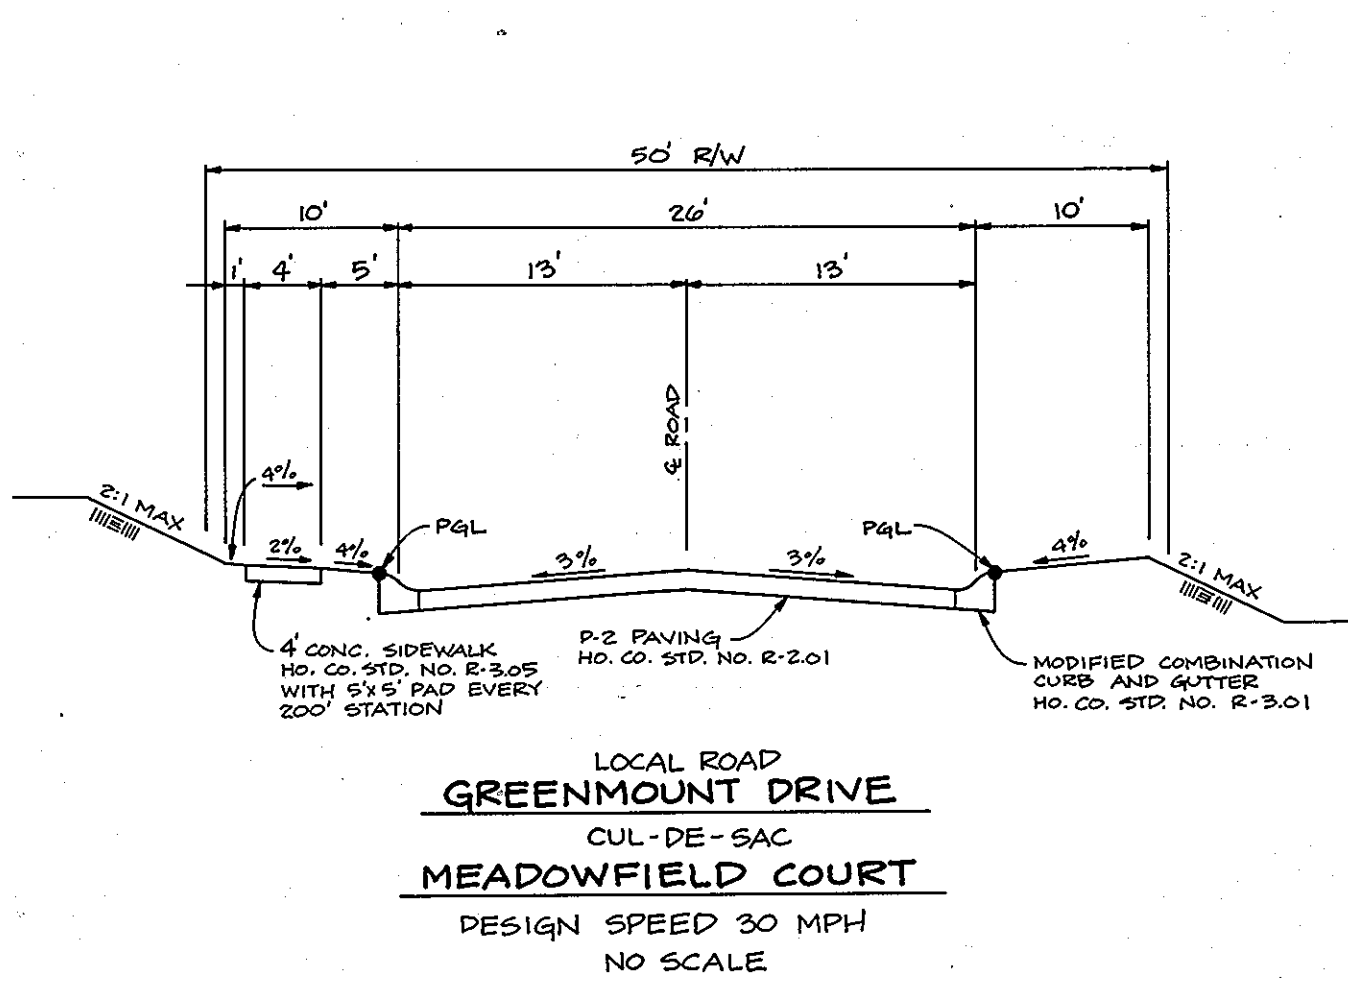 50' R/W
10' 26' 10'
1' 4' 5' 13' 13'
℄ ROAD
4%
2:1 MAX
PGL PGL
2% 4% 3% 3% 4%
2:1 MAX
4' CONC. SIDEWALK
HO. CO. STD. NO. R-3.05
WITH 5'x5' PAD EVERY
200' STATION
P-2 PAVING
HO. CO. STD. NO. R-2.01
MODIFIED COMBINATION
CURB AND GUTTER
HO. CO. STD. NO. R-3.01
LOCAL ROAD
GREENMOUNT DRIVE
CUL-DE-SAC
MEADOWFIELD COURT
DESIGN SPEED 30 MPH
NO SCALE